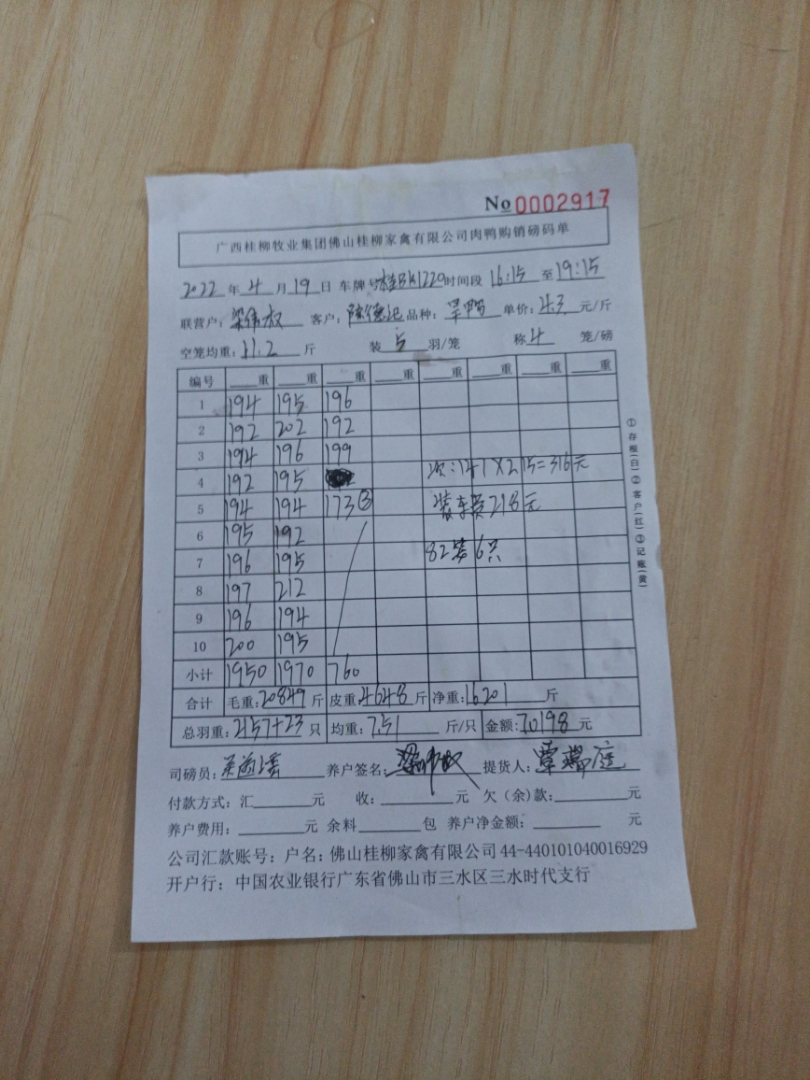 No 0002917
广西桂柳牧业集团佛山桂柳家禽有限公司肉鸭购销磅码单
2022 年 4 月 19 日 车牌号 1229 时间段 16:15 至 19:15
联营户: 梁伟权 客户: 陈德记 品种: 旱鸭 单价: 4.3 元/斤
空笼均重: 11.2 斤 装 5 羽/笼 称 4 笼/磅
编号 重 重 重 重 重 重 重 重
1 194 195 196
2 192 202 192
3 194 196 199
4 192 195 次:141×2.15=316元
5 194 194 173③ 装车费218元
6 195 192
7 196 195 82装6只
8 197 212
9 196 194
10 200 195
小计 1950 1970 760
合计 毛重: 20849 斤 皮重: 4648 斤 净重: 16201 斤
总羽重: 2157+23 只 均重: 7.51 斤/只 金额: 70198 元
司磅员: 养户签名: 梁伟权 提货人: 覃瑞庭
付款方式: 汇 元 收: 元 欠(余)款: 元
养户费用: 元 余料 包 养户净金额: 元
公司汇款账号: 户名: 佛山桂柳家禽有限公司 44-440101040016929
开户行: 中国农业银行广东省佛山市三水区三水时代支行
①存根(白)②客户(红)③记账(黄)